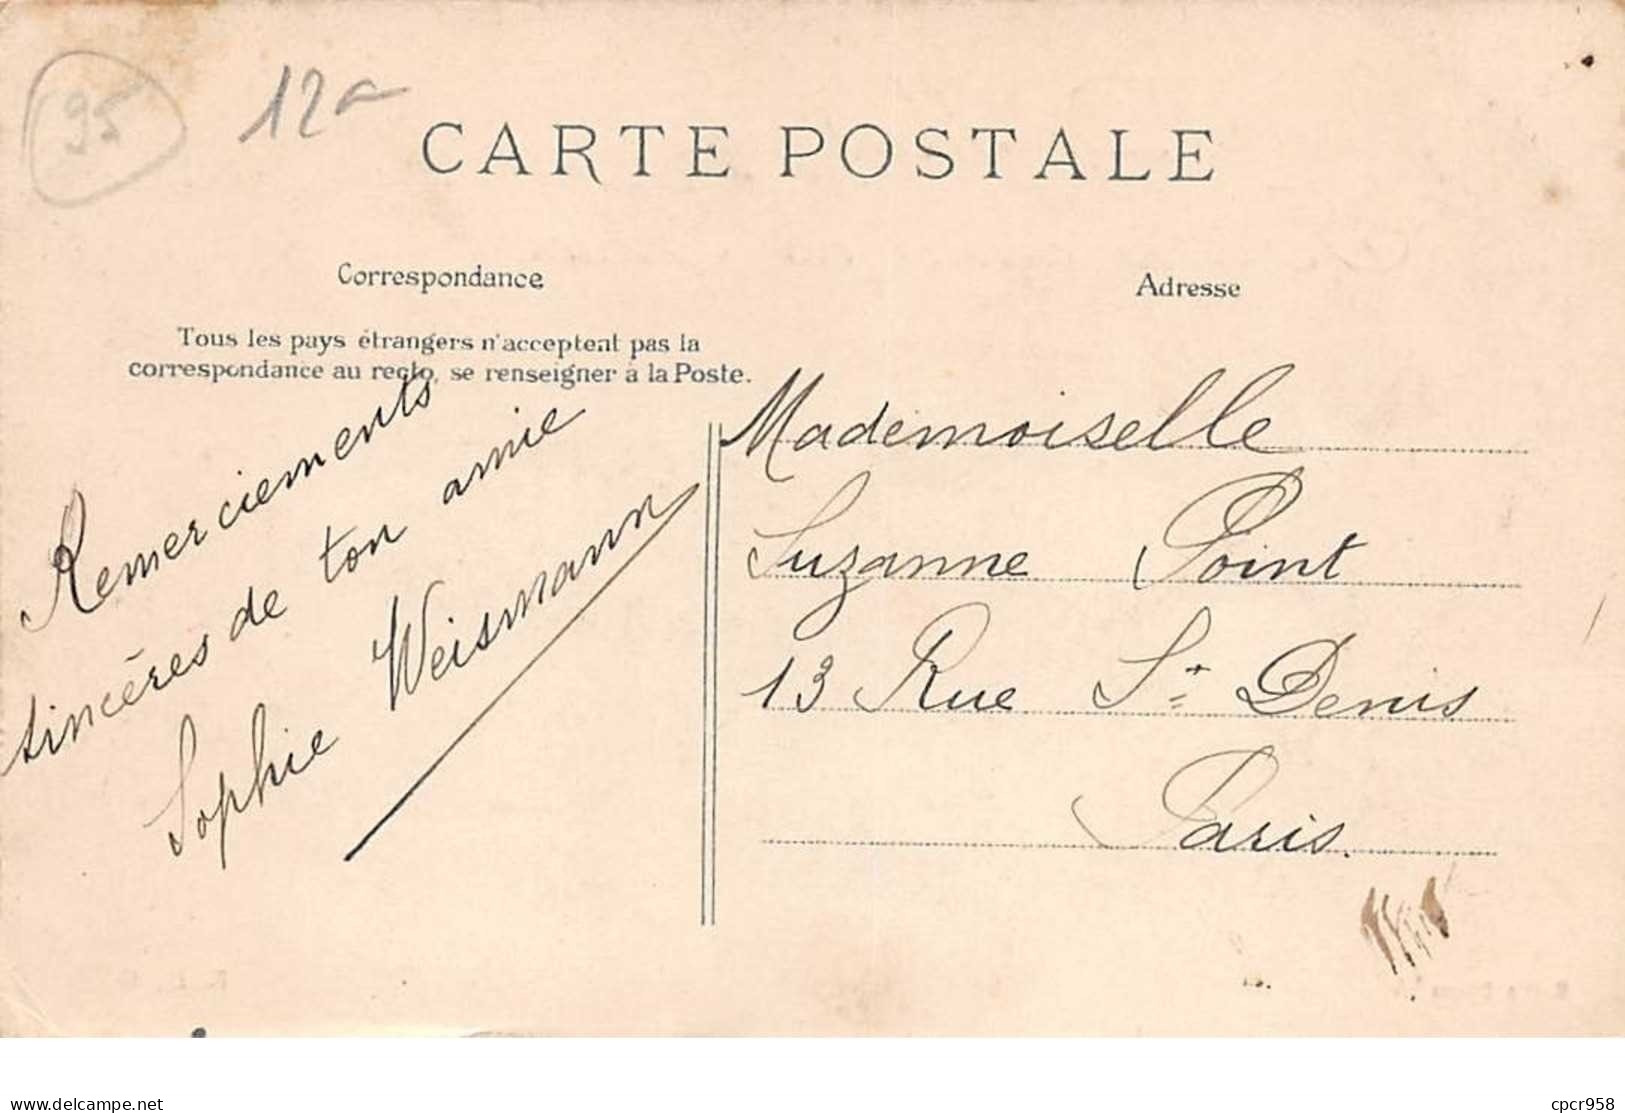 95
12
CARTE POSTALE
Correspondance
Tous les pays étrangers n'acceptent pas la
correspondance au recto, se renseigner à la Poste.
Remerciements
sincéres de ton amie
Sophie Weismann
Adresse
Mademoiselle
Suzanne Point
13 Rue St Denis
Paris.
www.delcampe.net
cpcr958